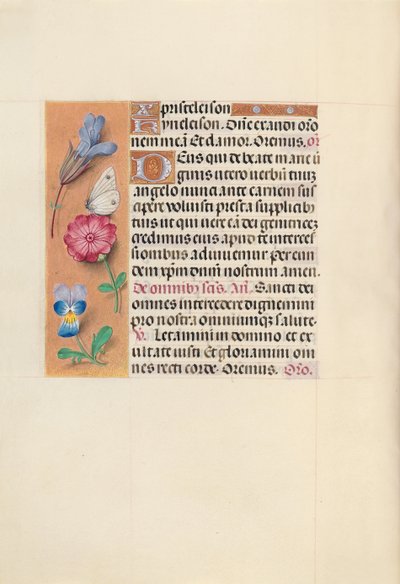 xpristeleison
kyrieleison. Dñe exaudi oro
nem meã Et clamor. Oremus. or
Deus qui de beate marie ũ
ginis utero verbũ tuũ
angelo nunciante carnem sus
cipere voluisti presta supplicibꝫ
tuis ut qui vere eã dei genitricẽ
credimus eius apud te interces
sionibus adiuuemur per eun
dem xpm dnm nostrum amen.
De omnibꝫ scis. An. Sancti dei
omnes intercedere dignemini
pro nostra omniumqꝫ salute.
V. Letamini in domino et ex
ultate iusti Et gloriamini om
nes recti corde. Oremus. Oro.